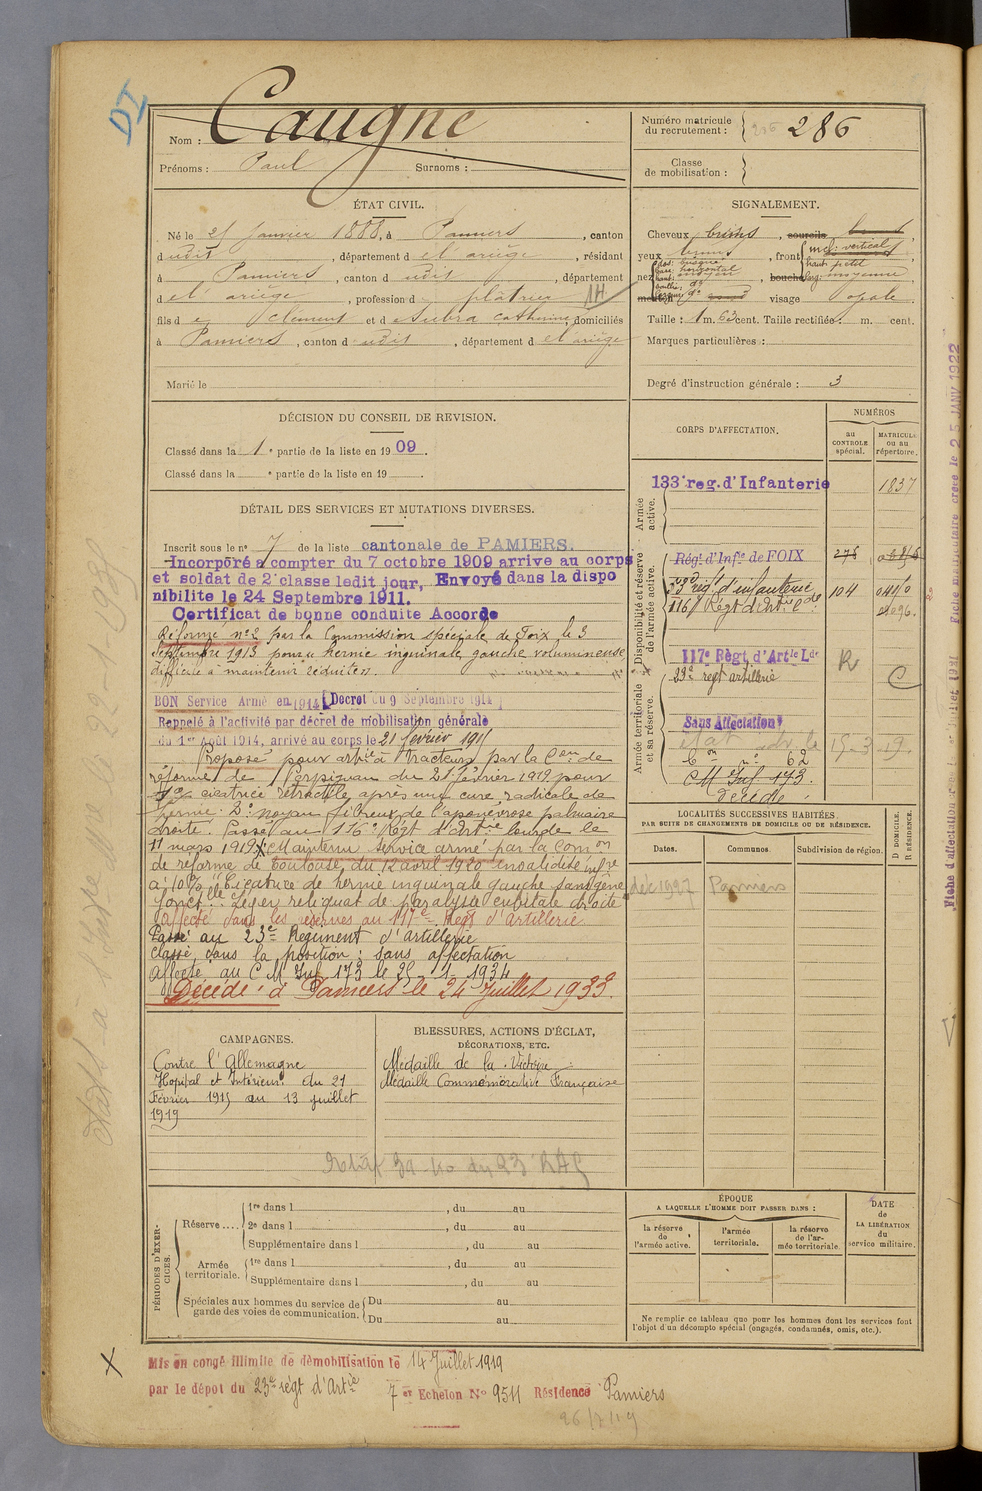 DI
Nom : Caugne
Prénoms : Paul Surnoms :
Numéro matricule
du recrutement : 286
Classe
de mobilisation :
ÉTAT CIVIL.
Né le 21 janvier 1888, à Pamiers, canton
d udit, département d e l'ariège, résidant
à Pamiers, canton d udit, département
d e l'ariège, profession d plâtrier
fils d e Clément et d e Subra Catherine, domiciliés
à Pamiers, canton d udit, département d e l'ariège
Marié le
SIGNALEMENT.
Cheveux bruns, sourcils
yeux, front incl: vertical
haut: petit
nez dos: busqué
base: horizontal
haut: moyen
bouche larg: moyenne
menton visage ovale.
Taille : 1 m. 63 cent. Taille rectifiée : m. cent.
Marques particulières :
Degré d'instruction générale : 3
DÉCISION DU CONSEIL DE REVISION.
Classé dans la 1e partie de la liste en 1909.
Classé dans la e partie de la liste en 19
DÉTAIL DES SERVICES ET MUTATIONS DIVERSES.
Inscrit sous le n° 7 de la liste cantonale de PAMIERS.
Incorporé à compter du 7 octobre 1909 arrive au corps
et soldat de 2e classe ledit jour, Envoyé dans la dispo
nibilite le 24 Septembre 1911.
Certificat de bonne conduite Accorde
Réformé n°2 par la Commission spéciale de Foix le 3
Septembre 1913 pour " hernie inguinale gauche volumineuse
difficile à maintenir réduite ".
BON Service Armé en 1914 (Decret du 9 Septembre 1914)
Rappelé à l'activité par décret de mobilisation générale
du 1er août 1914, arrivé au corps le 21 février 1915
Proposé pour artie à tracteurs par la Con de
réforme de Perpignan du 21 février 1919 pour
1° cicatrice rétractile après une cure radicale de
hernie. 2° noyau fibreux de l'aponévrose palmaire
droite. Passé au 116e Régt d'artie lourde le
11 mars 1919. Maintenu service armé par la Comon
de réforme de Toulouse du 12 avril 1920 invalidité infre
à 10% Cicatrice de hernie inguinale gauche sans gêne
fonctlle. Léger reliquat de paralysie cubitale droite
Affecté dans les réserves au 117e Régt d'artillerie
Passé au 23e Régiment d'artillerie
classé dans la position : sans affectation
affecté au C M Inf 173 le 25-1-1934
Décédé à Pamiers le 24 Juillet 1933.
CORPS D'AFFECTATION.
NUMÉROS
au
CONTROLE
spécial.
MATRICULE
ou au
répertoire.
Armée
active.
133e reg. d'Infanterie 1837
Disponibilité et réserve
de l'armée active.
Régt d'Infie de FOIX
rég' d'infanterie 104
116e Régt d'Artie Lde
117e Règt, d'Artie Lde R
C
Armée territoriale
et sa réserve.
23e regt artillerie
Sans Affectation
15-3 19.
CM Inf 173.
décédé
LOCALITÉS SUCCESSIVES HABITÉES
PAR SUITE DE CHANGEMENTS DE DOMICILE OU DE RÉSIDENCE.
Dates. Communes. Subdivision de région.
D DOMICILE.
R RÉSIDENCE.
déc 1927 Pamiers
CAMPAGNES.
Contre l'Allemagne
Hopital et Intérieur : du 21
Février 1915 au 13 juillet
1919
BLESSURES, ACTIONS D'ÉCLAT,
DÉCORATIONS, ETC.
Médaille de la Victoire
Médaille Commémorative Française
PÉRIODES D'EXER-
CICES.
Réserve .... 1re dans l , du au
2e dans l , du au
Supplémentaire dans l , du au
Armée
territoriale. 1re dans l , du au
Supplémentaire dans l , du au
Spéciales aux hommes du service de
garde des voies de communication. Du au
Du au
ÉPOQUE
A LAQUELLE L'HOMME DOIT PASSER DANS :
la réserve
de
l'armée active.
l'armée
territoriale.
la réserve
de l'ar-
mée territoriale.
DATE
de
LA LIBÉRATION
du
service militaire.
Ne remplir ce tableau que pour les hommes dont les services font
l'objet d'un décompte spécial (engagés, condamnés, omis, etc.).
Mis en congé illimité de démobilisation le 14 Juillet 1919
par le dépot du 23e régt d'Artie 7 er Echelon No 9511 Résidence Pamiers
26/7/19
Fiche matriculaire créée le 25 JANV 1922